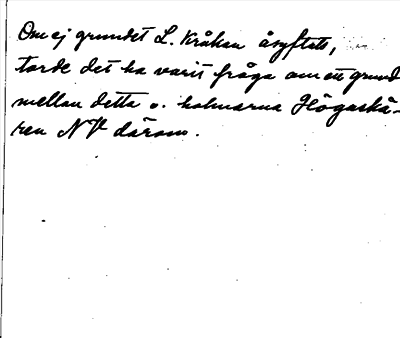 Om ej grundet L. Kråkan åsyftats,
torde det ha varit fråga om ett grund
mellan detta o. holmarna Högaskä-
ren NV därom.